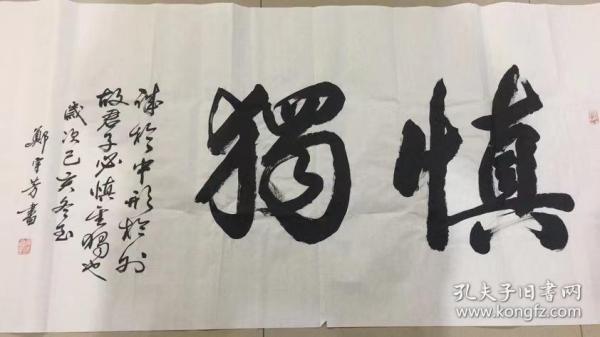 慎獨
誠於中形於外
故君子必慎其獨也
歲次己亥冬至
鄭宇芳書
孔夫子旧书网
www.kongfz.com